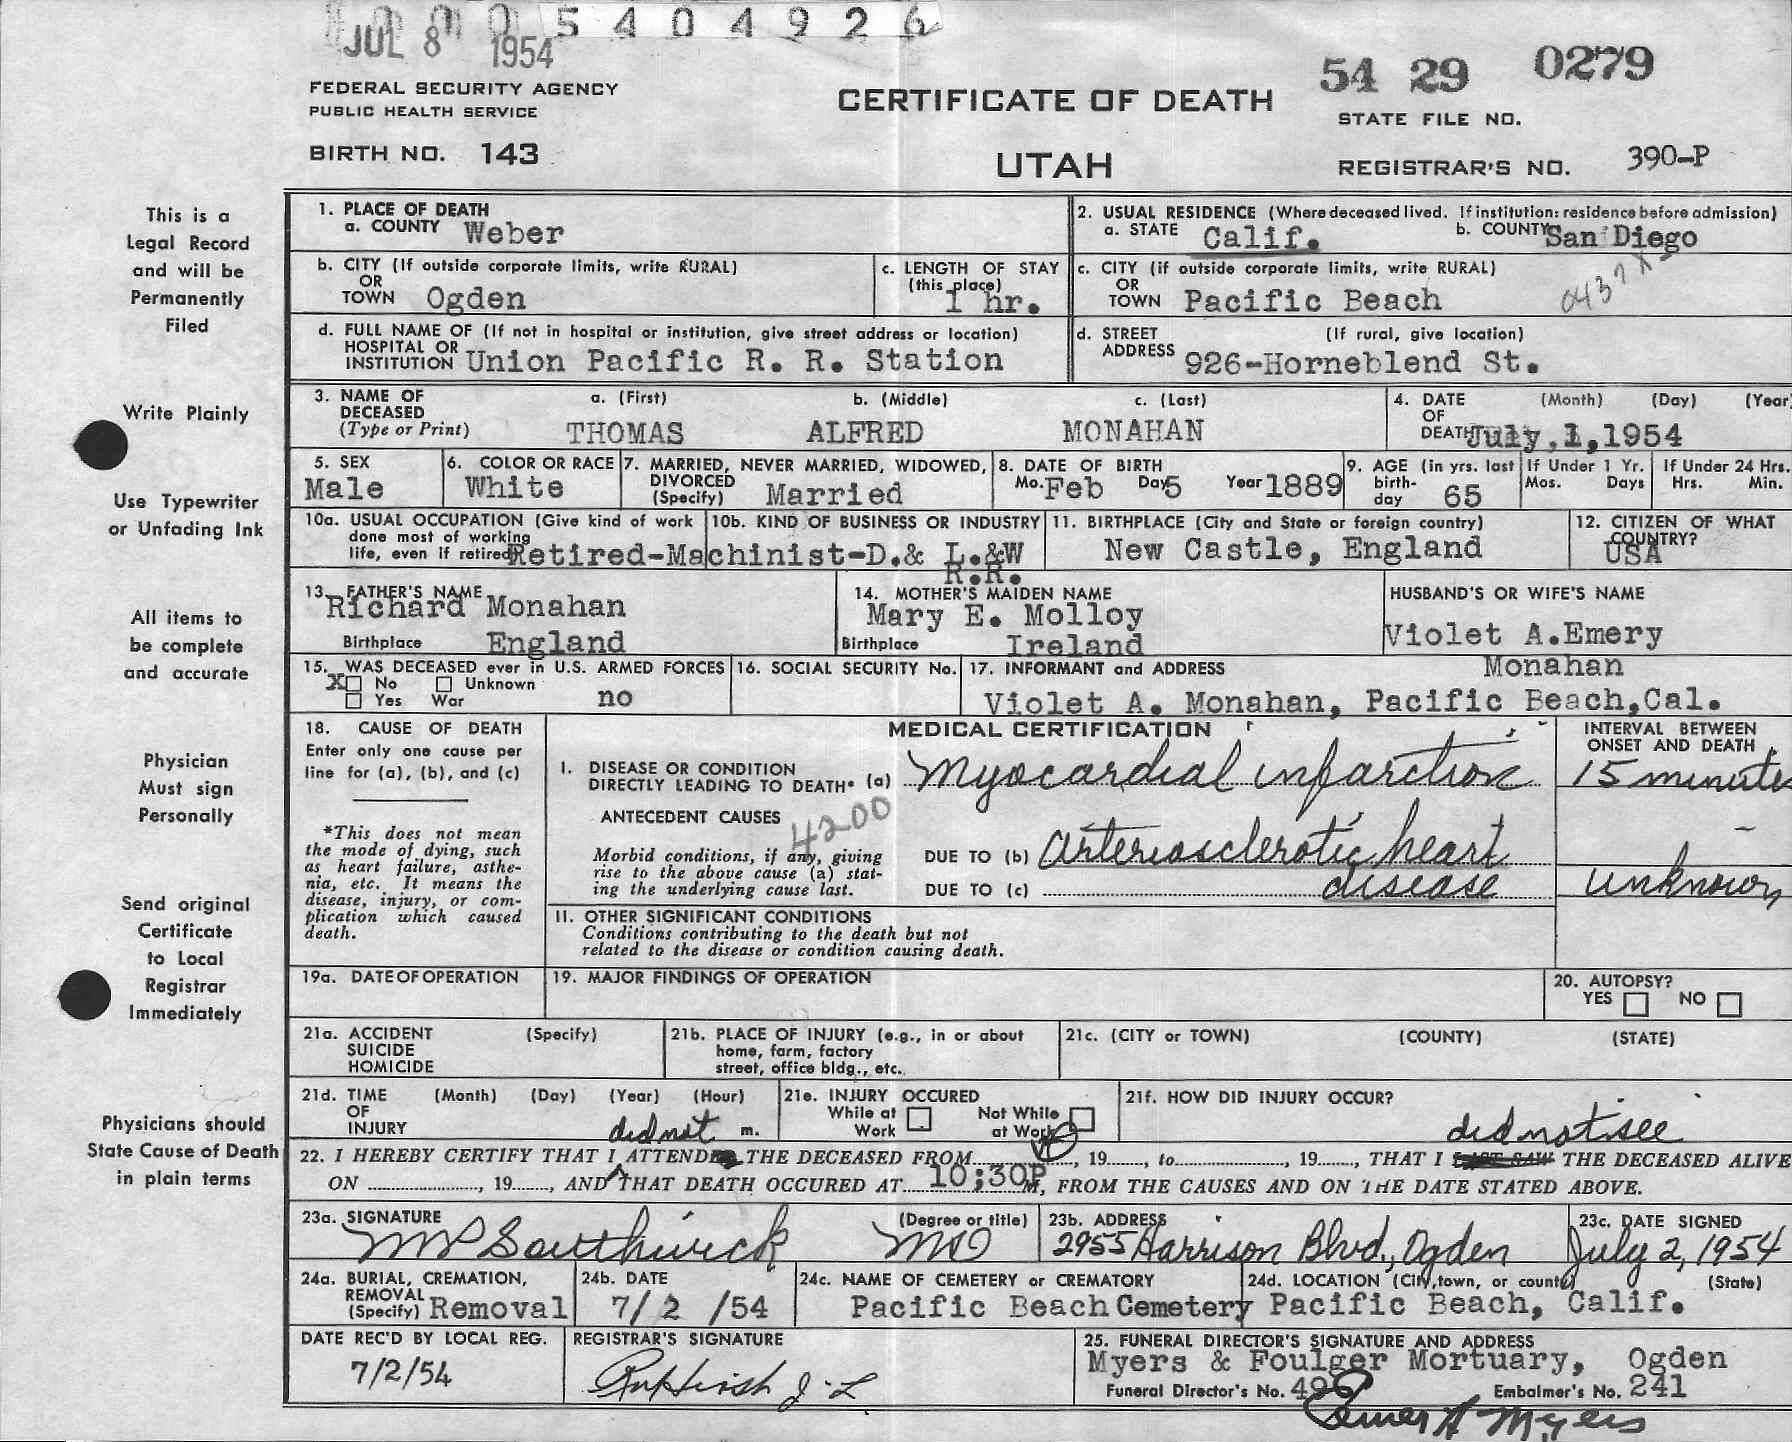 JUL 8 1954
5 4 0 4 9 2 6
54 29 0279
FEDERAL SECURITY AGENCY
PUBLIC HEALTH SERVICE
CERTIFICATE OF DEATH
STATE FILE NO.
BIRTH NO. 143
UTAH
REGISTRAR'S NO. 390-P
This is a
Legal Record
and will be
Permanently
Filed
Write Plainly
Use Typewriter
or Unfading Ink
All items to
be complete
and accurate
Physician
Must sign
Personally
Send original
Certificate
to Local
Registrar
Immediately
Physicians should
State Cause of Death
in plain terms
1. PLACE OF DEATH
a. COUNTY Weber
2. USUAL RESIDENCE (Where deceased lived. If institution: residence before admission)
a. STATE Calif. b. COUNTY San Diego
b. CITY (If outside corporate limits, write RURAL)
OR
TOWN Ogden
c. LENGTH OF STAY
(this place)
1 hr.
c. CITY (if outside corporate limits, write RURAL)
OR
TOWN Pacific Beach
d. FULL NAME OF (If not in hospital or institution, give street address or location)
HOSPITAL OR
INSTITUTION Union Pacific R. R. Station
d. STREET (If rural, give location)
ADDRESS 926-Horneblend St.
3. NAME OF a. (First) b. (Middle) c. (Last)
DECEASED
(Type or Print) THOMAS ALFRED MONAHAN
4. DATE (Month) (Day) (Year)
OF
DEATH July,1,1954
5. SEX
Male
6. COLOR OR RACE
White
7. MARRIED, NEVER MARRIED, WIDOWED,
DIVORCED
(Specify) Married
8. DATE OF BIRTH
Mo. Feb Day 5 Year 1889
9. AGE (in yrs. last
birth-
day 65
If Under 1 Yr.
Mos. Days
If Under 24 Hrs.
Hrs. Min.
10a. USUAL OCCUPATION (Give kind of work
done most of working
life, even if retired)
10b. KIND OF BUSINESS OR INDUSTRY
Retired-Machinist-D.& L.&W
R.R.
11. BIRTHPLACE (City and State or foreign country)
New Castle, England
12. CITIZEN OF WHAT
COUNTRY?
USA
13. FATHER'S NAME
Richard Monahan
Birthplace England
14. MOTHER'S MAIDEN NAME
Mary E. Molloy
Birthplace Ireland
HUSBAND'S OR WIFE'S NAME
Violet A.Emery
Monahan
15. WAS DECEASED ever in U.S. ARMED FORCES
X No Unknown
Yes War no
16. SOCIAL SECURITY No.
17. INFORMANT and ADDRESS
Violet A. Monahan, Pacific Beach,Cal.
18. CAUSE OF DEATH
Enter only one cause per
line for (a), (b), and (c)
*This does not mean
the mode of dying, such
as heart failure, asthe-
nia, etc. It means the
disease, injury, or com-
plication which caused
death.
MEDICAL CERTIFICATION
INTERVAL BETWEEN
ONSET AND DEATH
I. DISEASE OR CONDITION
DIRECTLY LEADING TO DEATH* (a) Myocardial infarction 15 minutes
ANTECEDENT CAUSES 4200
Morbid conditions, if any, giving
rise to the above cause (a) stat-
ing the underlying cause last.
DUE TO (b) Arteriosclerotic heart
DUE TO (c) disease unknown
II. OTHER SIGNIFICANT CONDITIONS
Conditions contributing to the death but not
related to the disease or condition causing death.
19a. DATE OF OPERATION
19. MAJOR FINDINGS OF OPERATION
20. AUTOPSY?
YES NO
21a. ACCIDENT (Specify)
SUICIDE
HOMICIDE
21b. PLACE OF INJURY (e.g., in or about
home, farm, factory
street, office bldg., etc.
21c. (CITY or TOWN) (COUNTY) (STATE)
21d. TIME (Month) (Day) (Year) (Hour)
OF
INJURY m.
21e. INJURY OCCURED
While at Work
Not While at Work
21f. HOW DID INJURY OCCUR?
did not did not see
22. I HEREBY CERTIFY THAT I ATTEND THE DECEASED FROM, 19, to, 19, THAT I LAST SAW THE DECEASED ALIVE
ON, 19, AND THAT DEATH OCCURED AT 10:30P M, FROM THE CAUSES AND ON THE DATE STATED ABOVE.
23a. SIGNATURE (Degree or title)
Southwick MD
23b. ADDRESS
2955 Harrison Blvd., Ogden
23c. DATE SIGNED
July 2, 1954
24a. BURIAL, CREMATION,
REMOVAL
(Specify) Removal
24b. DATE
7/2/54
24c. NAME OF CEMETERY or CREMATORY
Pacific Beach Cemetery
24d. LOCATION (City, town, or county) (State)
Pacific Beach, Calif.
DATE REC'D BY LOCAL REG.
7/2/54
REGISTRAR'S SIGNATURE
25. FUNERAL DIRECTOR'S SIGNATURE AND ADDRESS
Myers & Foulger Mortuary, Ogden
Funeral Director's No. 496 Embalmer's No. 241
Myers